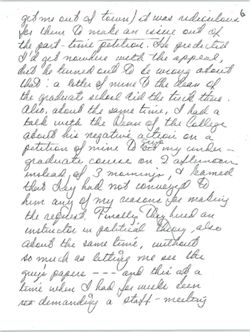 6
get me out of town) it was ridiculous
for them to make an issue out of
the part-time petition. Ivy predicted
I'd get nowhere with the appeal,
but he turned out to be wrong about
that: a letter of mine to the dean of
the graduate school did the trick there.
Also about the same time, I had a
talk with the Dean of the College
about his negative action on a
petition of mine to give my under-
graduate course on 2 afternoons
instead of 3 mornings, & learned
that Ivy had not conveyed to
him any of my reasons for making
the request. Finally Ivy hired an
instructor in political theory, also
about the same time, without
so much as letting me see the
guy's papers --- and this at a
time when I had for weeks been
demanding a staff-meeting